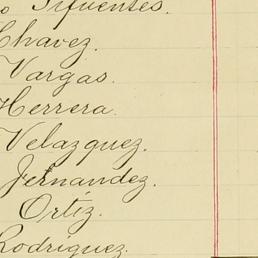 o Sifuentes.
Chavez.
Vargas.
Herrera.
Velazquez.
Fernandez.
Ortiz.
Rodriguez.